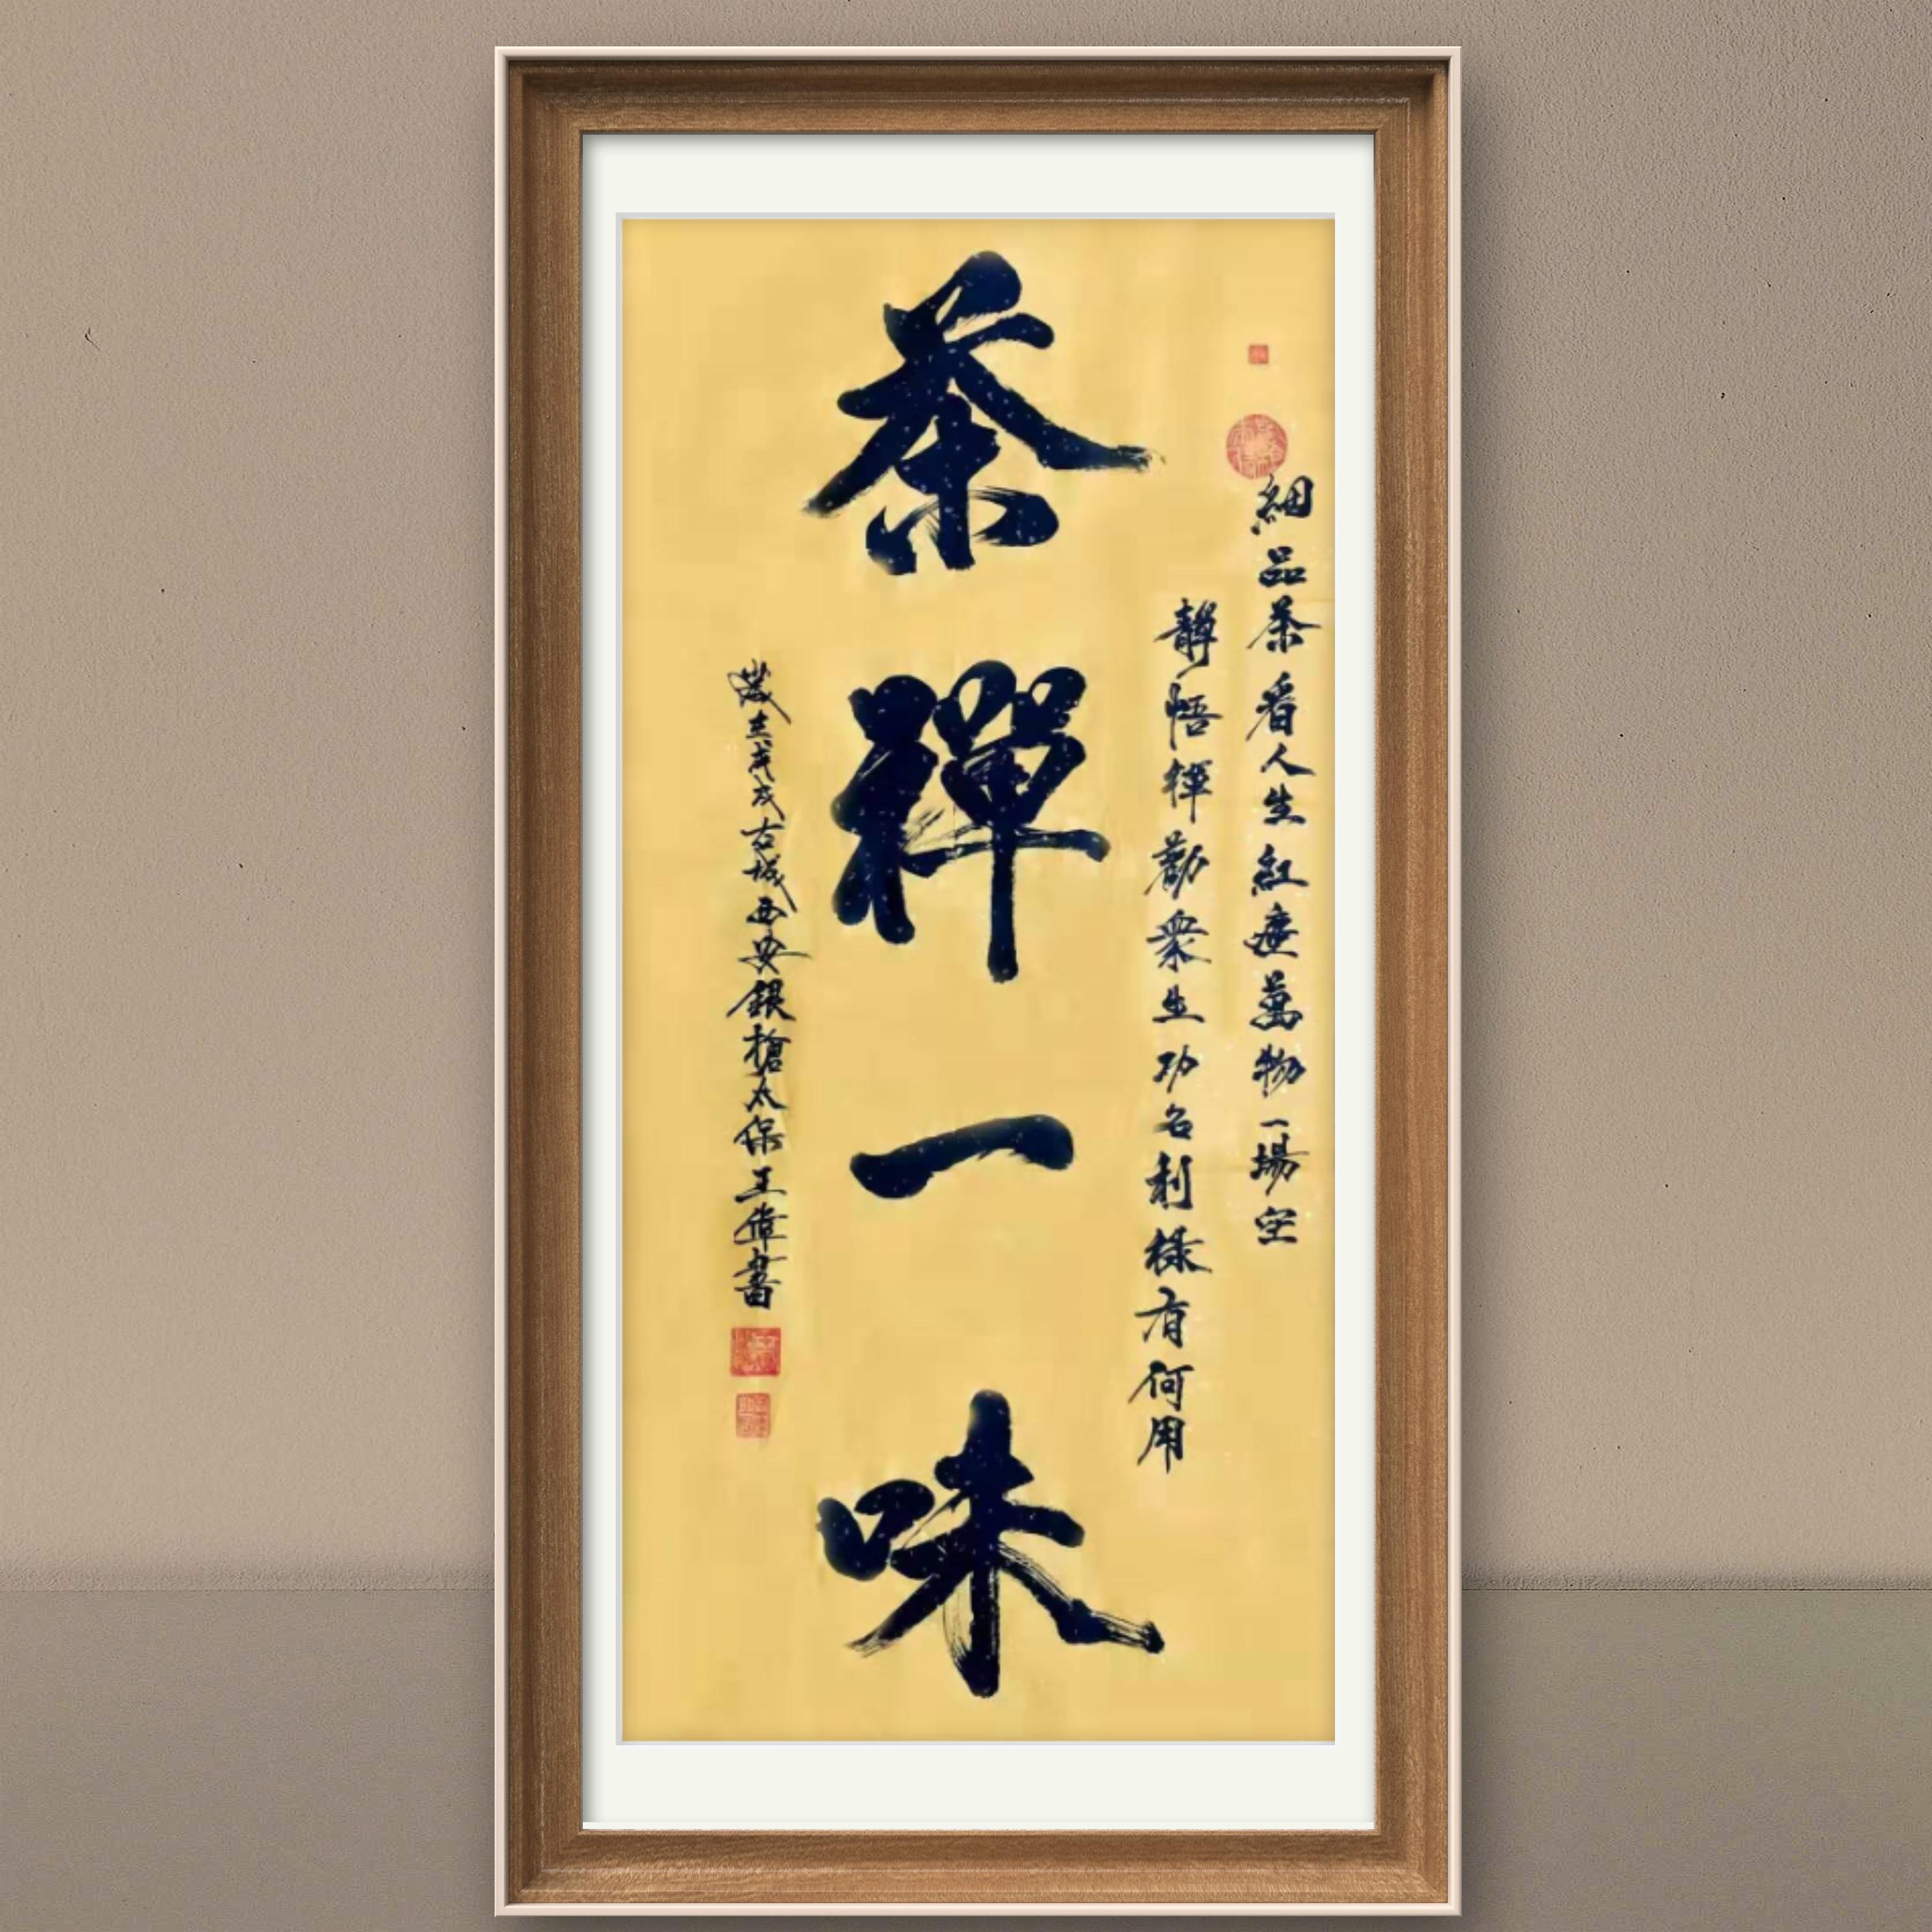 細品茶看人生紅塵萬物一場空
靜悟禪勸衆生功名利祿有何用
茶禪一味
歲在戊戌古城西安銀槍太保王偉書